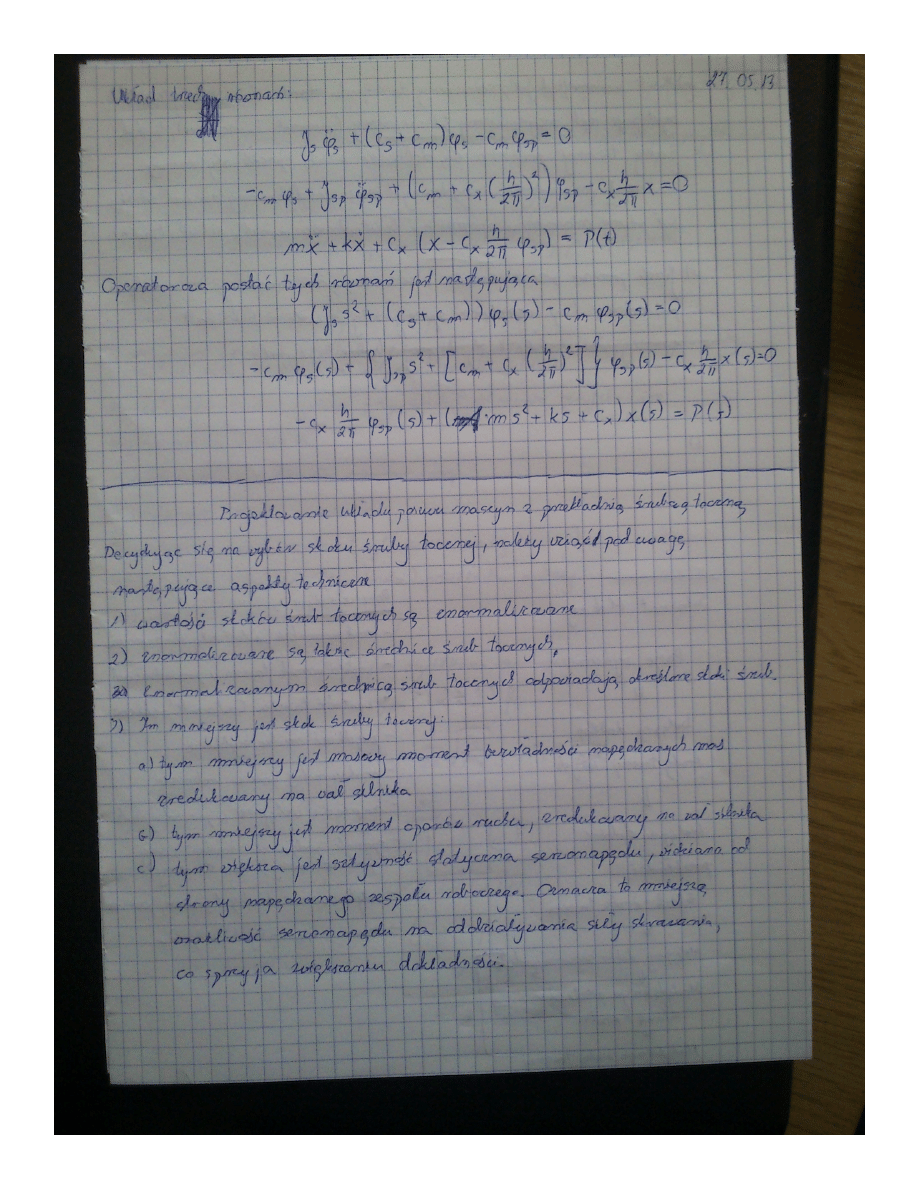 27.05.13
Układ trzech równań:
J_s φ̈_s + (c_s + c_m) φ_s - c_m φ_sp = 0
-c_m φ_s + J_sp φ̈_sp + (c_m + c_x (h/2π)²) φ_sp - c_x h/2π x = 0
mẍ + kẋ + c_x (x - c_x h/2π φ_sp) = P(t)
Operatorowa postać tych równań jest następująca
(J_s s² + (c_s + c_m)) φ_s(s) - c_m φ_sp(s) = 0
-c_m φ_s(s) + { J_sp s² + [c_m + c_x (h/2π)²]} φ_sp(s) - c_x h/2π x(s) = 0
-c_x h/2π φ_sp(s) + (ms² + ks + c_x) x(s) = P(s)
Projektowanie układu posuwu maszyn z przekładnią śrubową toczną
Decydując się na wybór skoku śruby tocznej, należy wziąść pod uwagę
następujące aspekty techniczne
1) wartości skoków śrub tocznych są znormalizowane
2) znormalizowane są także średnice śrub tocznych,
znormalizowanym średnicą śrub tocznych odpowiadają określone skoki śrub.
3) Im mniejszy jest skok śruby tocznej:
a) tym mniejszy jest masowy moment bezwładności napędzanych mas
zredukowany na wał silnika
b) tym mniejszy jest moment oporów ruchu, zredukowany na wał silnika
c) tym większa jest sztywność statyczna serwonapędu, widziana od
strony napędzanego zespołu roboczego. Oznacza to mniejszą
wrażliwość serwonapędu na oddziaływania siły skrawania,
co sprzyja zwiększeniu dokładności.